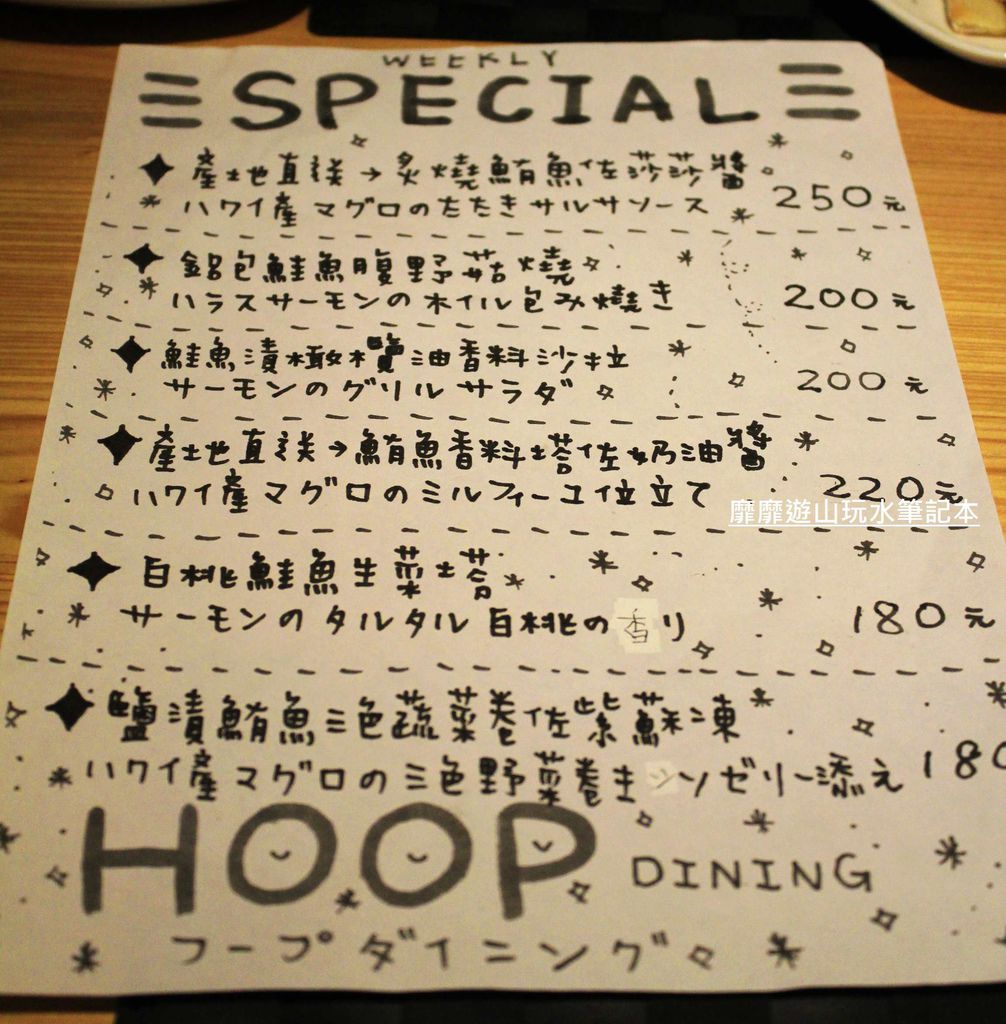 WEEKLY
SPECIAL
產地直送→炙燒鮪魚佐莎莎醬
ハワイ産マグロのたたきサルサソース 250元
鋁包鮭魚腹野菇燒
ハラスサーモンのホイル包み焼き 200元
鮭魚漬橄欖油香料沙拉
サーモンのグリルサラダ 200元
產地直送→鮪魚香料塔佐奶油醬
ハワイ産マグロのミルフィーユ仕立て 220元
靡靡遊山玩水筆記本
白桃鮭魚生菜塔
サーモンのタルタル白桃の香り 180元
鹽漬鮪魚三色蔬菜卷佐紫蘇凍
ハワイ産マグロの三色野菜巻きシソゼリー添え 180
HOOP DINING
フープダイニング